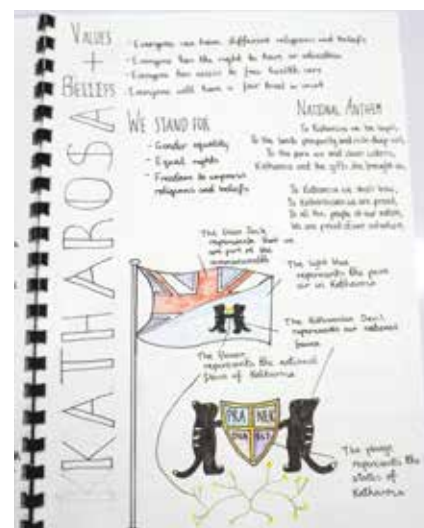 VALUES
+
BELIEFS
- Everyone can have different religions and beliefs
- Everyone has the right to have an education
- Everyone has access to free health care
- Everyone will have a fair trial in court
WE STAND FOR
- Gender equality
- Equal rights
- Freedom to express
religions and beliefs
NATIONAL ANTHEM
To Katharosa we be loyal,
To the
To the pure air and clear waters,
Katharosa and the gifts she brought us,
To Katharosa we shall bow,
To Katharosians we are proud,
To all the people of our nation,
We are proud of our
KATHAROSA
The Union Jack
represents that we
are part of the
commonwealth
The light blue
represents the pure
air in Katharosa
The Katharosian Devil
represents our national
fauna
The flower
represents the national
flora of Katharosa
PRA
NEK
The
represents the
states of
Katharosa